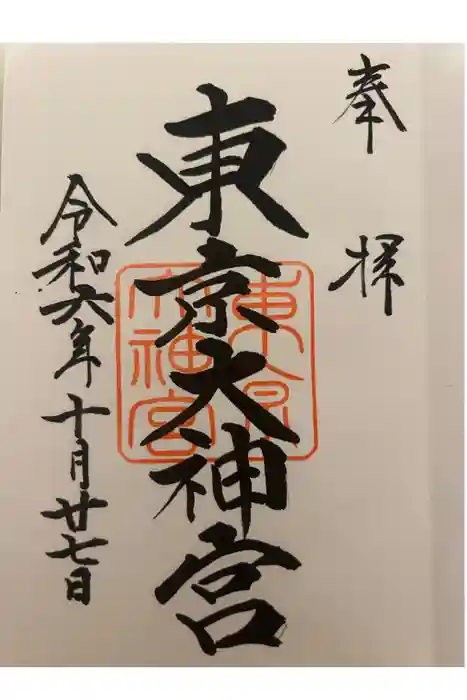 奉拝
東京大神宮
東京
大神宮
令和六年十月廿七日